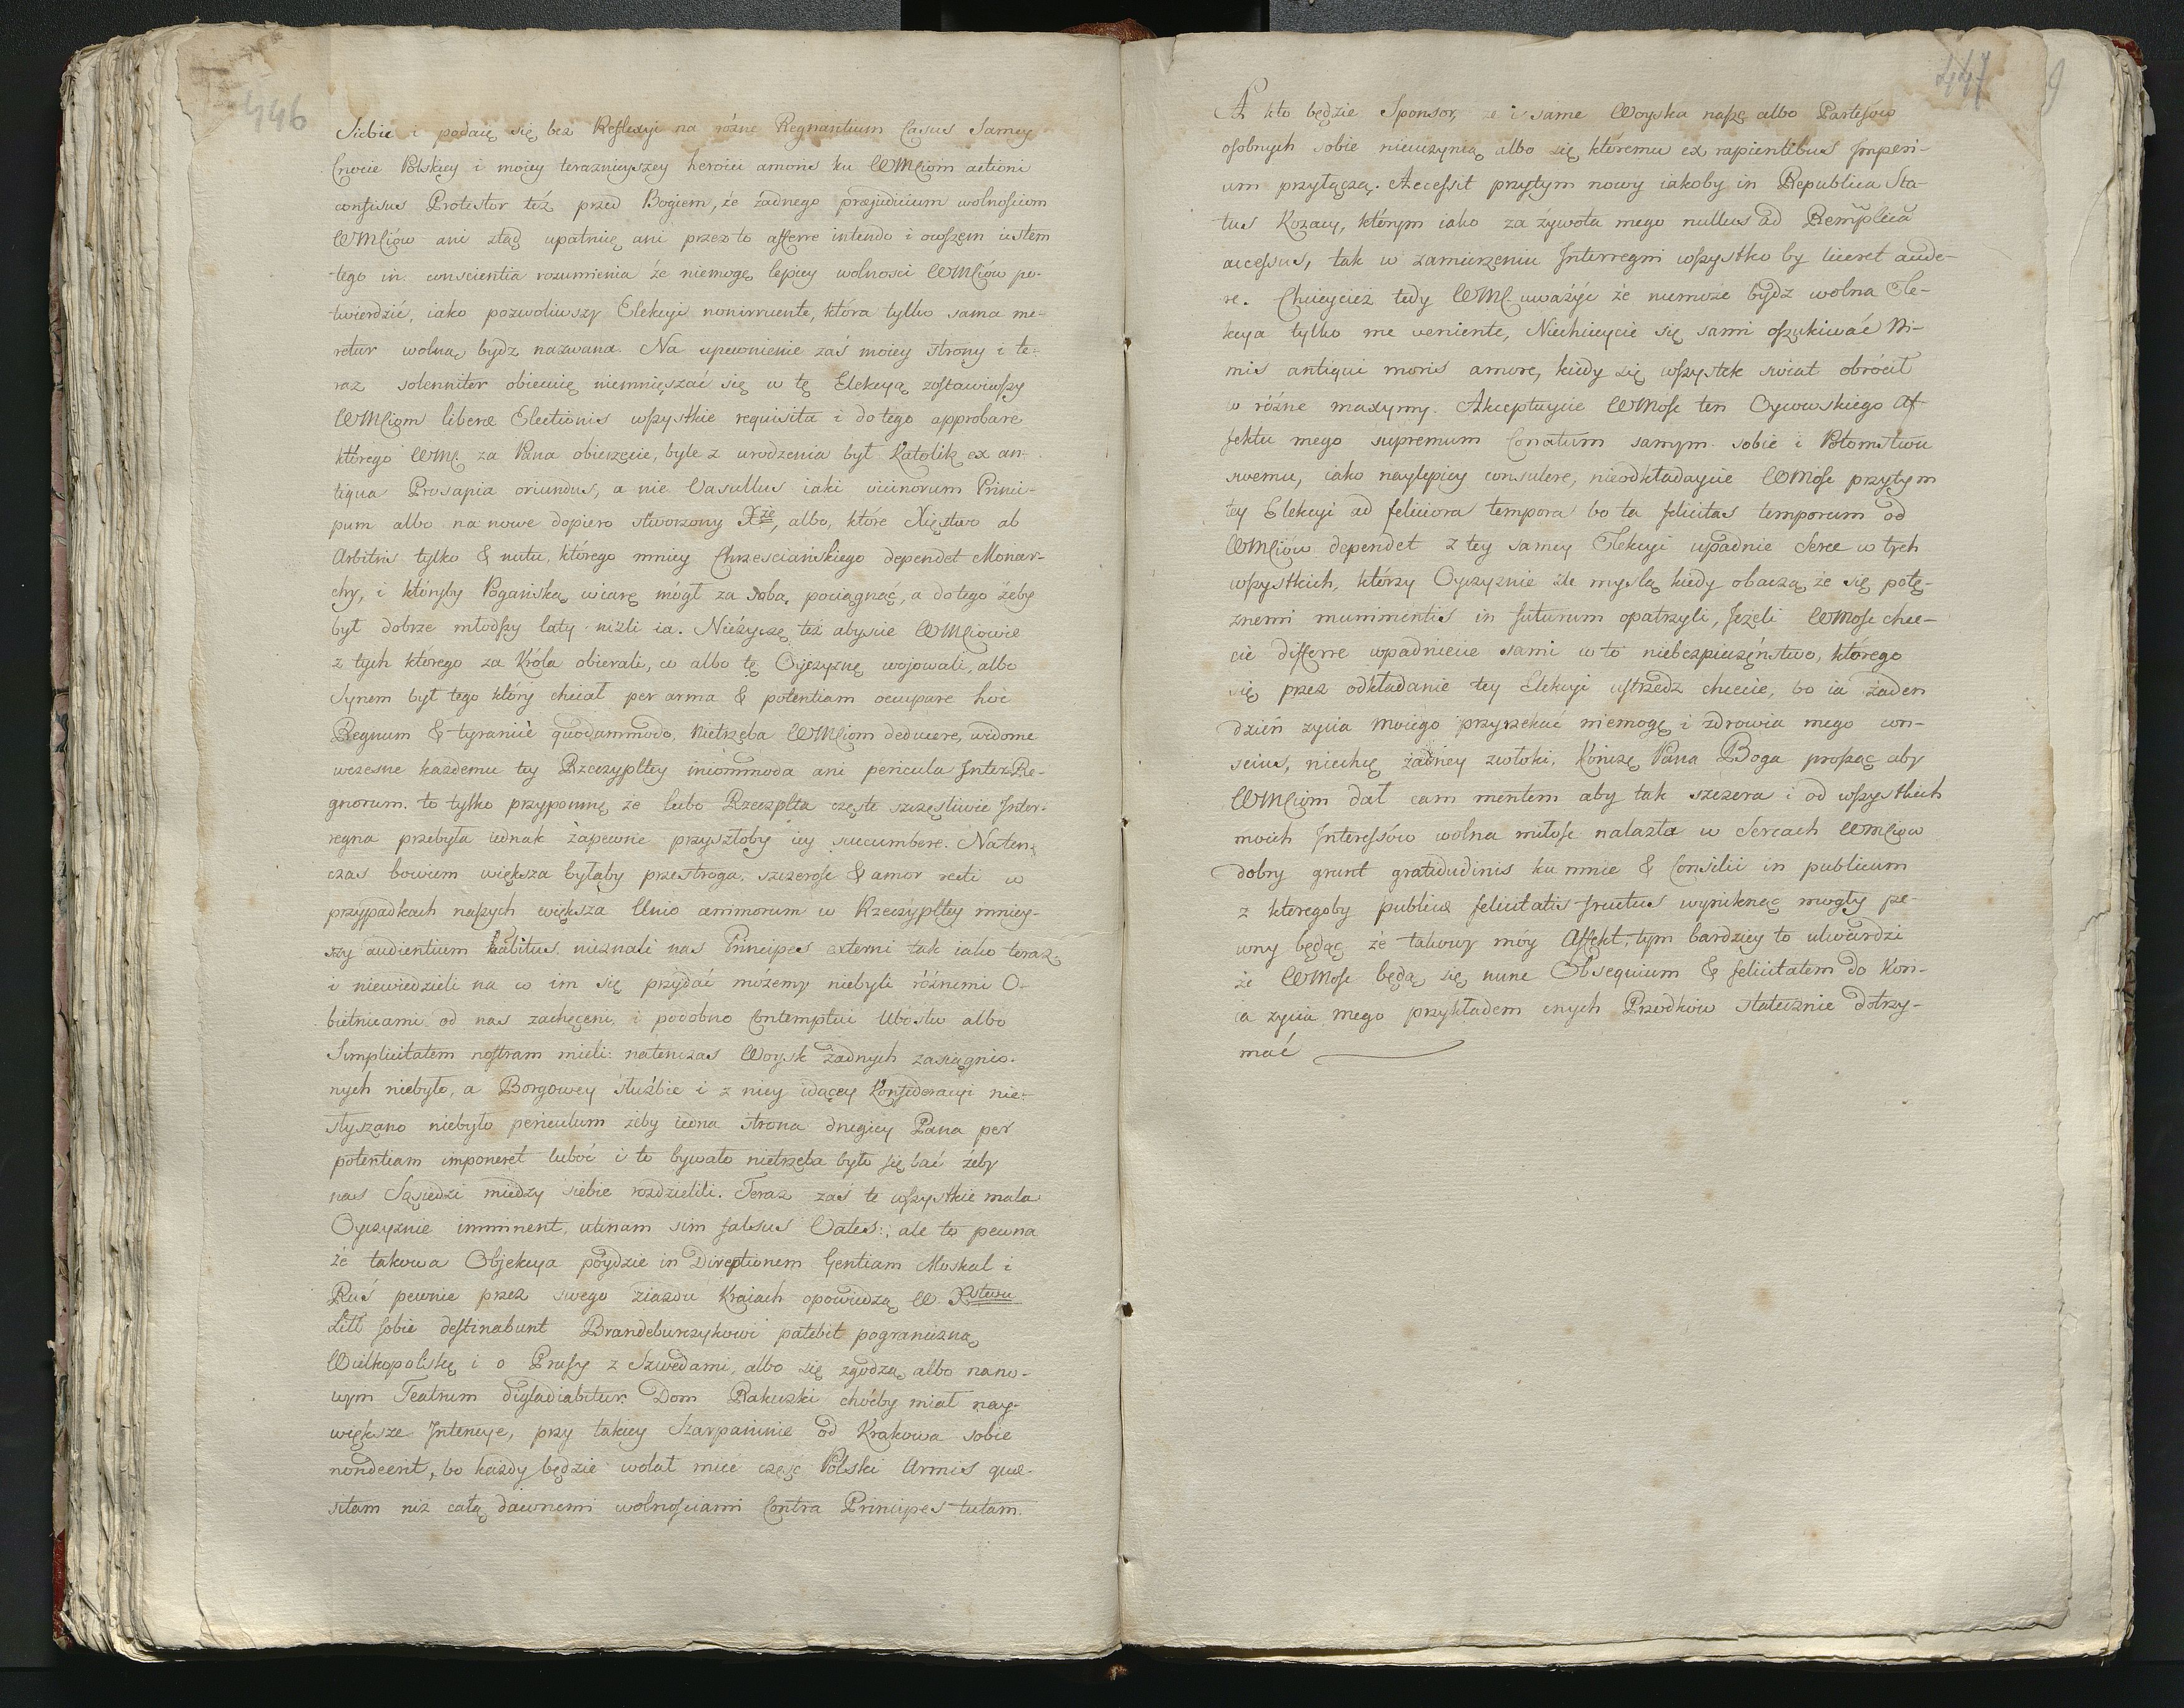 446
Siebie i podaię się bez Reflexyi na różne Regnantium Casus Samey
Cnocie Polskiey i moiey teraznieyszey heroici amoris ku WMciom actioni
confisus Protestor też przed Bogiem, że żadnego præjudicium wolnościom
WMciów ani ztąd upatruię ani przezto afferre intendo i owszem iestem
tego in conscientia rozumienia że niemogę lepiey wolnosci WMciów po-
twierdzić, iako pozwoliwszy Elekcyi non irruente, która tylko sama me-
retur wolną bydz nazwana. Na upewnienie zaś moiey strony i te-
raz solenniter obiecuię niemnięszać się w tę Elekcyą zostawiwszy
WMciom liberæ Electionis wszystkie requisita i do tego approbare
którego WMc za Pana obierzecie, byle z urodzenia był Katolik ex an-
tiqua Prosapia oriundus, a nie Vasallus iaki vicinorum Princi-
pum albo na nowe dopiero stworzony Xże, albo, które Xięstwo ab
Arbitris tylko & nutu, którego mniey Chrzesciańskiego dependet Monar-
chy, i któryby Pogańską wiarę mógł za sobą pociągnąć, a do tego żeby
był dobrze młodszy laty niżli ia. Nieżyczę też abyscie WMciowie
z tych którego za Króla obierali, co albo tę Oyczyznę wojowali, albo
Synem był tego który chciał per arma & potentiam occupare hoc
Regnum & tyranicè quodammodo, nietrzeba WMciom deducere, widome
wczesne każdemu tey Rzeczypltey incommoda ani pericula InterRe-
gnorum, to tylko przypomnę że lubo Rzeczplta częste szczęśliwie Inter-
regna przebyła iednak zapewne przyszłoby iey succumbere. Naten-
czas bowiem większa byłaby przestroga, szczerość & amor recti w
przypadkach naszych większa Unio animorum w Rzeczypltey mniey-
szy audientium habitus, nieznali nas Principes externi tak iako teraz
i niewiedzieli na co im się przydać możemy niebyli różnemi O-
bietnicami od nas zachęceni, i podobno Contemptui Ubostw albo
Simplicitatem nostram mieli: natenczas Woysk żadnych zaciągnio-
nych niebyło, a Borgowey służbie i z niey idącey Konfederacyi nie-
słyszano niebyło periculum żeby iedna strona drugiey Pana per
potentiam imponeret luboć i to bywało nietrzeba było się bać żeby
nas Sąsiedzi miedzy siebie rozdzielili. Teraz zaś te wszystkie mala
Oyczyznie imminent, utinam sim falsus Vates:, ale to pewna
że takowa Objekcya póydzie in Direptionem Gentiam Moskal i
Ruś pewnie przez swego ziazdu Kraiach opowiedzą W. Xstwu
Litt sobie destinabunt Brandeburczykowi patebit pograniczną
Wielkopolskę i o Prusy z Szwedami, albo się zgodzą albo nano-
wym Teatrum digladiabitur. Dom Rakuzki choćby miał nay-
większe Intencye, przy takiey Szarpaninie od Krakowa sobie
nondeerit, bo każdy będzie wolał miec część Polski Armis quæ-
sitam niż całą dawnemi wolnościami Contra Principes tutam.
447
9
A kto będzie Sponsor, że i same Woyska nasze albo Partesów
osobnych sobie nieuczynią albo się któremu ex rapientibus Imperi-
um przyłączą. Accessit przytym nowy iakoby in Republica Sta-
tus Kozacy, którym iako za żywota mego nullus ad Remplcã
accessus, tak w zamierzeniu Interregni wszystko by liceret aude-
re. Chcieycież tedy WMć uważyć że niemoże bydz wolna Ele-
kcya tylko me vivente, Niechcieycie się sami oszukiwać Ni-
mis antiqui moris amore, kiedy się wszystek swiat obrócił
w różne maxymy. Akceptuycie WMość ten Oycowskiego Af-
fektu mego supremum Conatum samym sobie i Potomstwu
swemu, iako naylepiey consulere, nieodkładaycie WMość przytym
tey Elekcyi ad feliciora tempora bo ta felicitas temporum od
WMciów dependet z tey samey Elekcyi upadnie Serce w tych
wszystkich, którzy Oyczyznie zle myslą kiedy obaczą, że się potę-
żnemi munimentis in futurum opatrzyli, Jeżeli WMość chce-
cie differre wpadniecie sami w to niebezpieczęństwo, którego
się przez odkładanie tey Elekcyi ustrzedz chcecie, bo ia żaden
dzień życia moiego przyrzekać niemogę i zdrowia mego con-
scius, niechcę żadney zwłoki, Kończę Pana Boga prosząc aby
WMciom dał eam mentem aby tak szczera i od wszystkich
moich Interessów wolna miłość nalazła w Sercach WMciów
dobry grunt gratitudinis ku mnie & Consilii in publicum
z któregoby publicæ felicitatis fructus wyniknąć mogły pe-
wny będąc że takowy móy Affekt, tym bardziey to utwierdzi
że WMość będą się nunc Obsequium & felicitatem do Koń-
ca życia mego przykładem cnych Przodków statecznie dotrzy-
mać